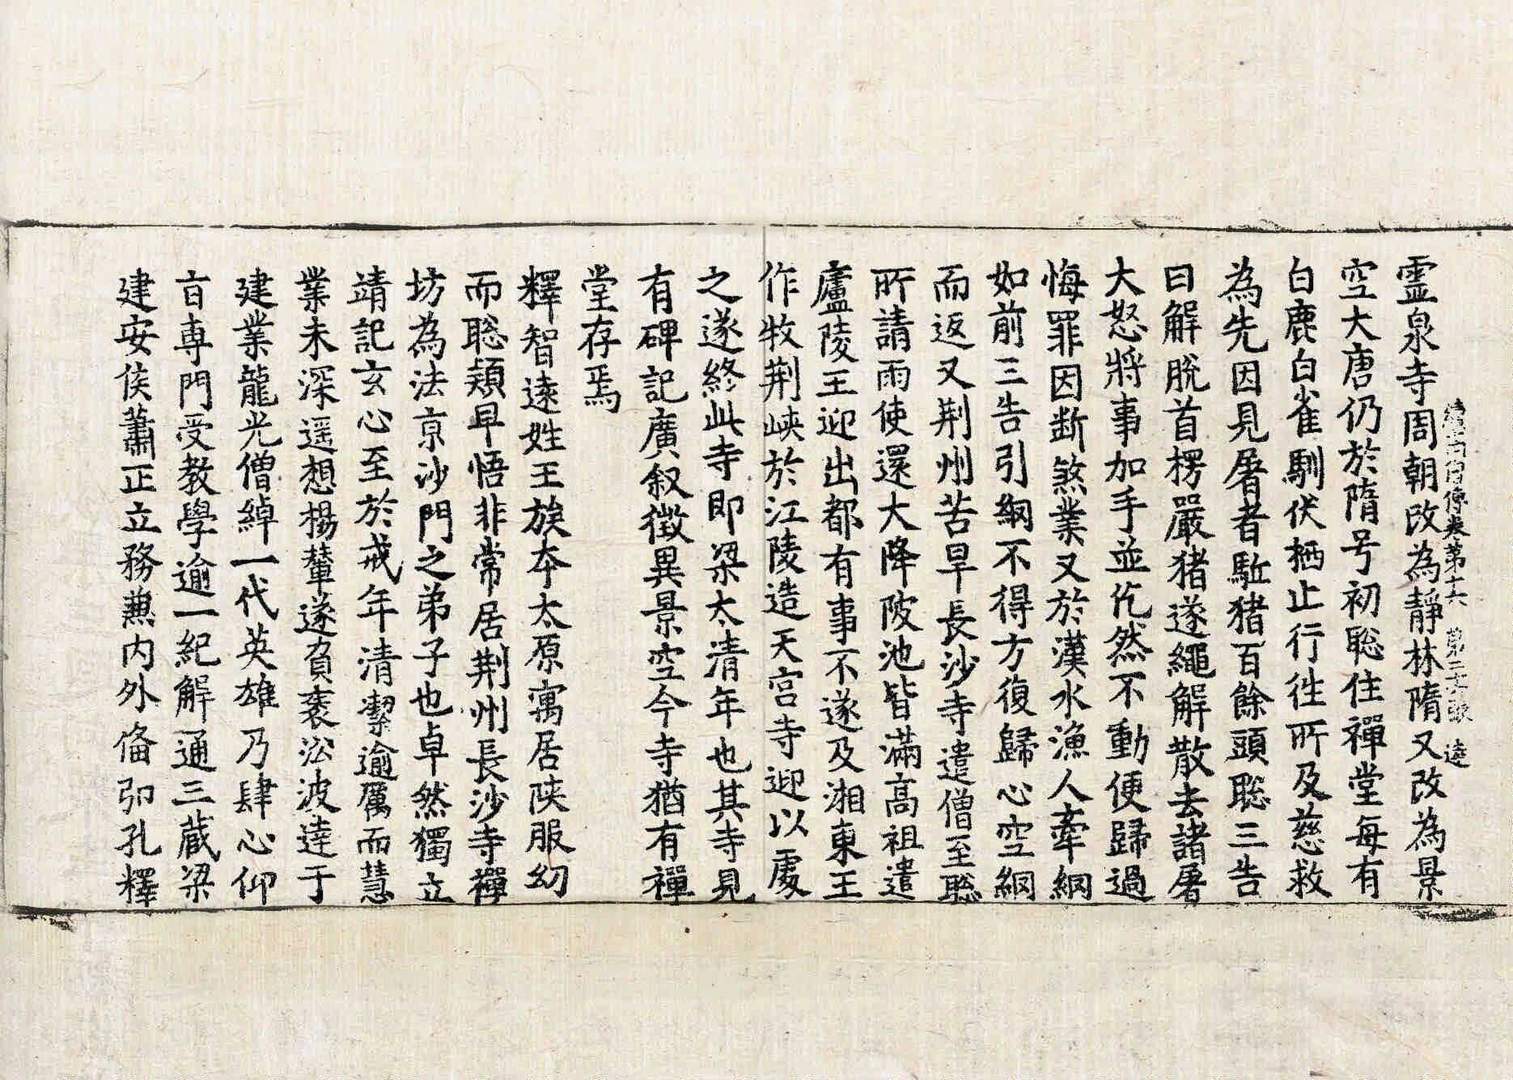 靈泉寺周朝改為靜林隋又改為景
空大唐仍於隋号初聡住禪堂每有
白鹿白雀馴伏栖止行徃所及慈救
為先因見屠者駈猪百餘頭聡三告
曰解脫首楞嚴猪遂繩解散去諸屠
大怒將事加手並仡然不動便歸過
悔罪因断煞業又於漢水漁人牽網
如前三告引網不得方復歸心空網
而返又荆州苦旱長沙寺遣僧至聡
所請雨使還大降陂池皆滿髙祖遣
廬陵王迎出都有事不遂及湘東王
作牧荆峽於江陵造天宫寺迎以處
之遂終此寺即梁太清年也其寺見
有碑記廣叙徵異景空今寺猶有禪
堂存焉
釋智遠姓王族夲太原寓居陕服㓜
而聡穎早悟非常居荆州長沙寺禪
坊為法京沙門之弟子也卓然獨立
靖記玄心至於戒年清潔逾厲而慧
業未深遥想楊輦遂負袠㳂波達于
建業龍光僧綽一代英雄乃肆心仰
旨専門受教學逾一紀解通三蔵梁
建安侯蕭正立務兼内外俻弘孔釋
續高僧傳卷第十六 第二十張 逵